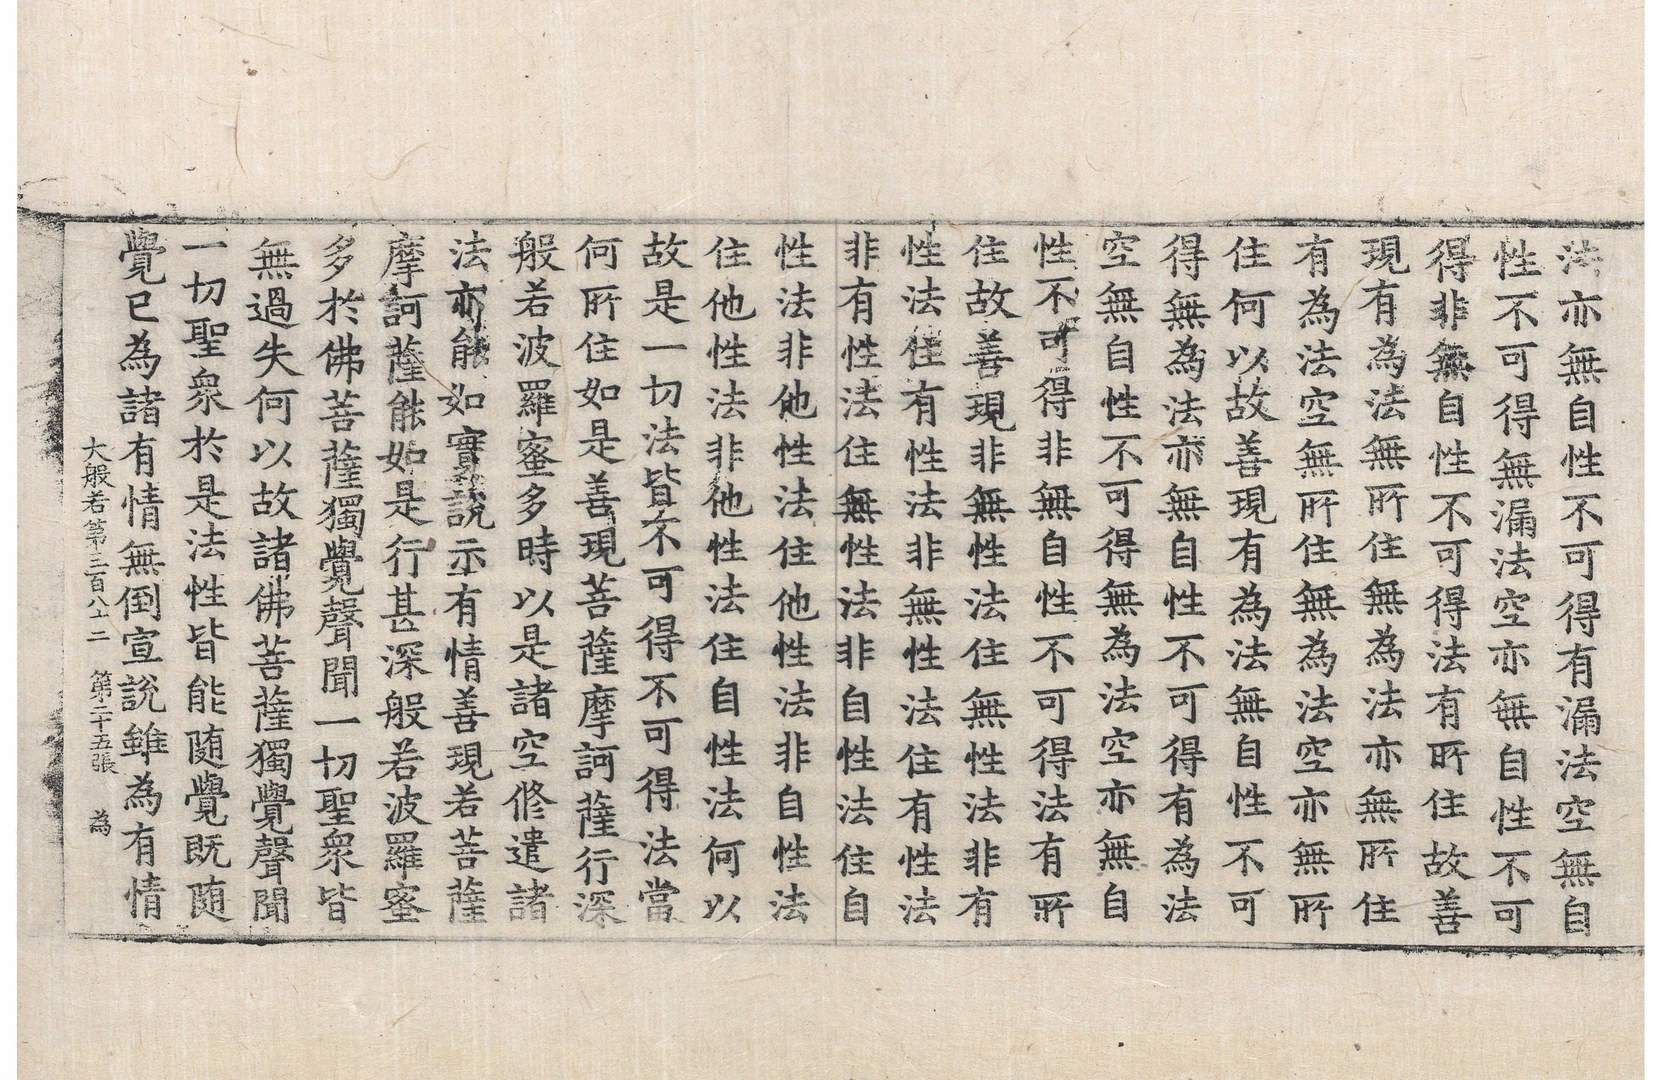 法亦無自性不可得有漏法空無自
性不可得無漏法空亦無自性不可
得非無自性不可得法有所住故善
現有為法無所住無為法亦無所住
有為法空無所住無為法空亦無所
住何以故善現有為法無自性不可
得無為法亦無自性不可得有為法
空無自性不可得無為法空亦無自
性不可得非無自性不可得法有所
住故善現非無性法住無性法非有
性法住有性法非無性法住有性法
非有性法住無性法非自性法住自
性法非他性法住他性法非自性法
住他性法非他性法住自性法何以
故是一切法皆不可得不可得法當
何所住如是善現菩薩摩訶薩行深
般若波羅蜜多時以是諸空修遣諸
法亦能如實說示有情善現若菩薩
摩訶薩能如是行甚深般若波羅蜜
多於佛菩薩獨覺聲聞一切聖眾皆
無過失何以故諸佛菩薩獨覺聲聞
一切聖眾於是法性皆能随覺既随
覺已為諸有情無倒宣說雖為有情
大般若第三百八十二 第二十五張 為